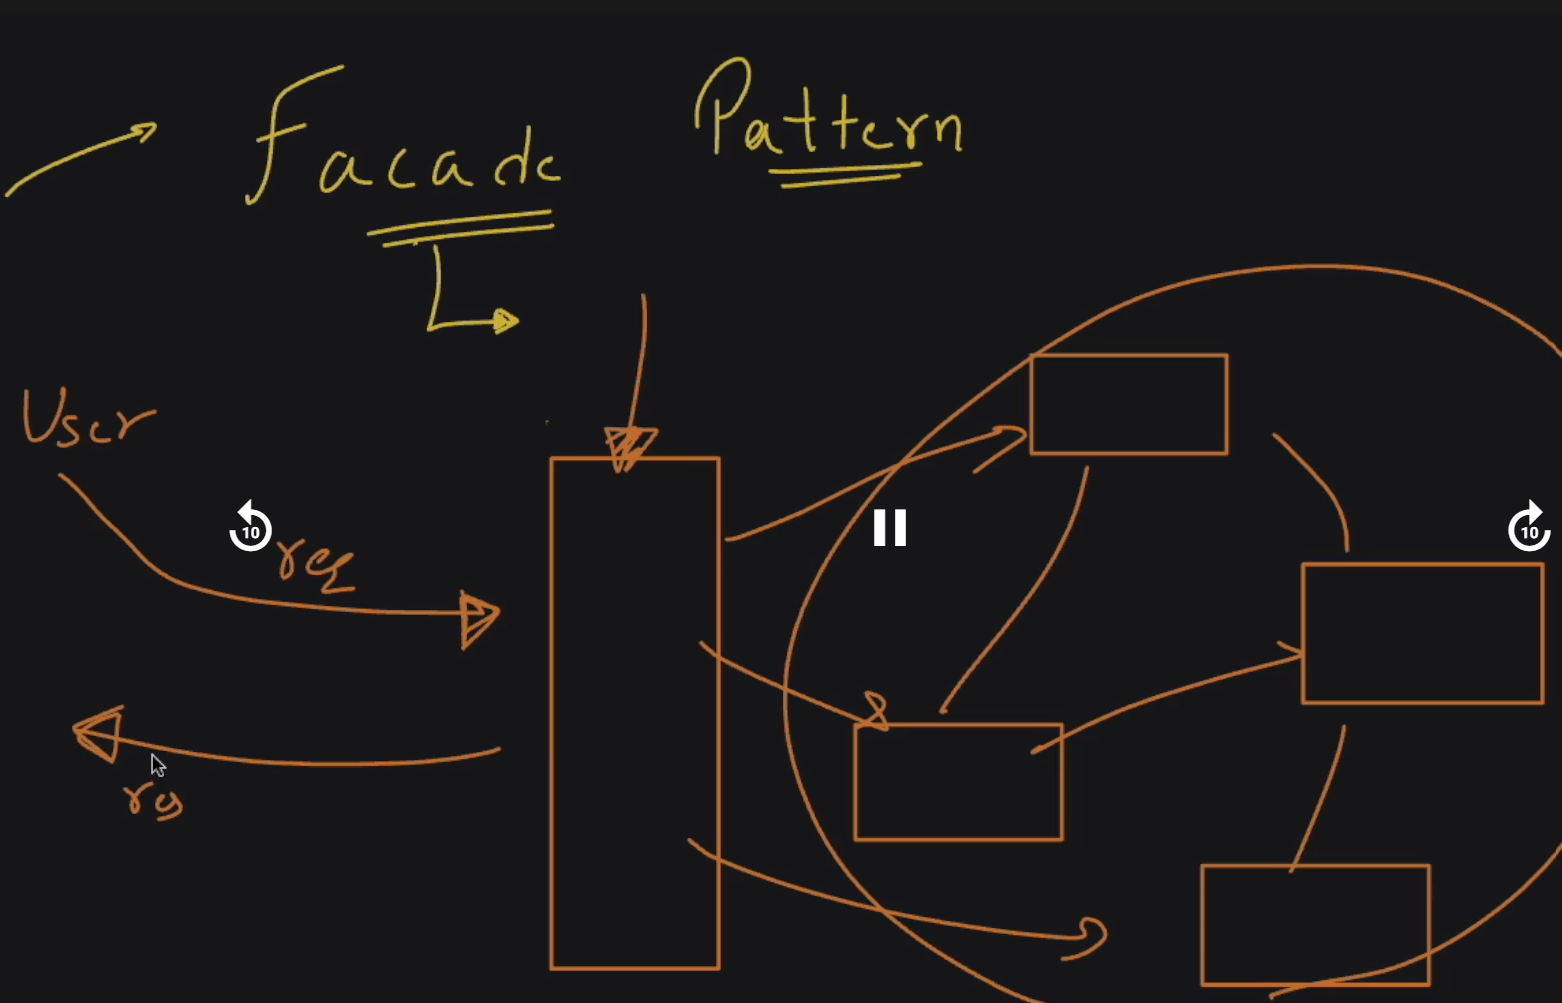 Facade Pattern
User
req
10
10
res